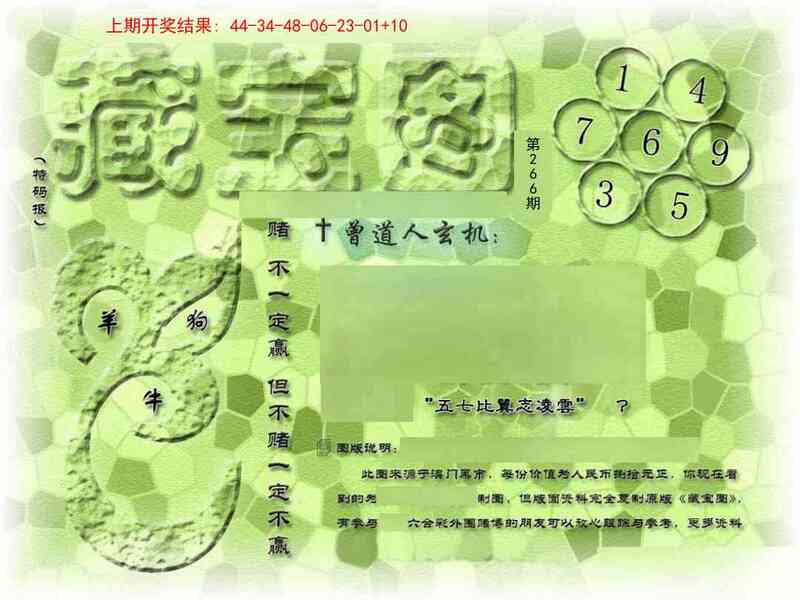 上期开奖结果: 44-34-48-06-23-01+10
藏宝图
（特码报）
第266期
1 4
7 6 9
3 5
羊 狗
牛
赌不一定赢但不赌一定不赢
十曾道人玄机：
"五七比翼志凌雲" ？
图版说明：
此图来源于澳门黑市，每份价值为人民币捌拾元正，你现在看
到的为 制图，但版面资料完全复制原版《藏宝图》，
有参与 六合彩外围赌博的朋友可以放心跟踪与参考，更多资料